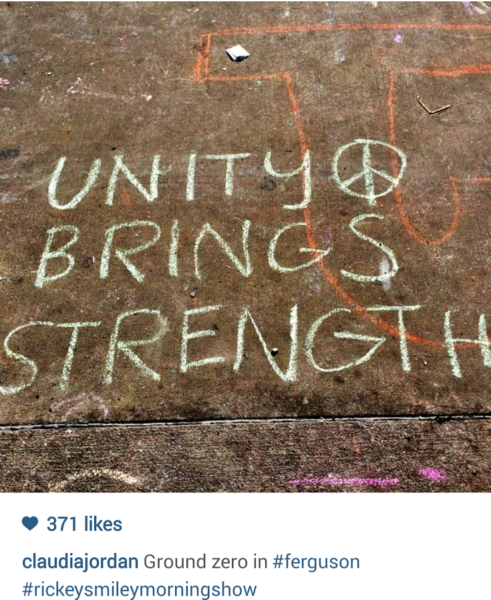 UNITY
BRINGS
STRENGTH
371 likes
claudiajordan Ground zero in #ferguson
#rickeysmileymorningshow